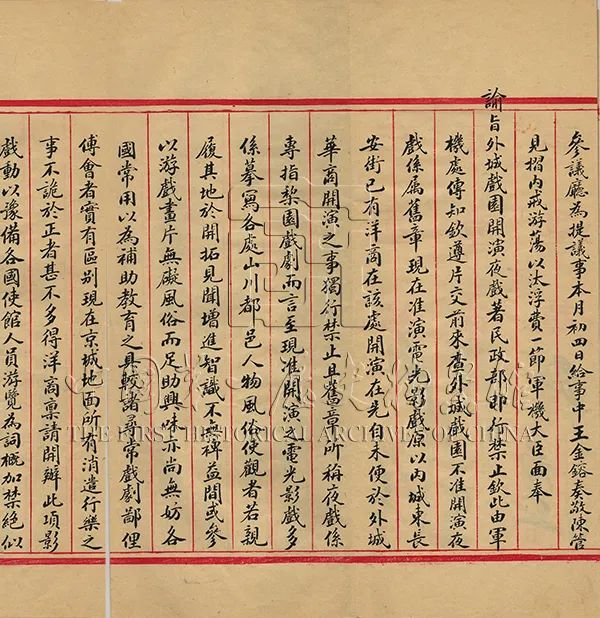 參議廳為提議事本月初四日給事中王金鎔奏敬陳管
見摺內戒游蕩以汰浮費一節軍機大臣面奉
諭旨外城戲園開演夜戲著民政部即行禁止欽此由軍
機處傳知欽遵片交前來查外城戲園不准開演夜
戲係屬舊章現在准演電光影戲原以內城東長
安街已有洋商在該處開演在先自未便於外城
華商開演之事獨行禁止且舊章所稱夜戲係
專指梨園戲劇而言至現准開演之電光影戲多
係摹寫各處山川都邑人物風俗使觀者若親
履其地於開拓見聞增進智識不無裨益間或參
以游戲畫片無礙風俗而足助興味亦尚無妨各
國常用以為補助教育之具較諸尋常戲劇鄙俚
傅會者實有區別現在京城地面所有消遣行樂之
事不詭於正者甚不多得洋商稟請開辦此項影
戲動以豫備各國使館人員游覽為詞概加禁絕似
中國第一歷史檔案館
THE FIRST HISTORICAL ARCHIVES OF CHINA